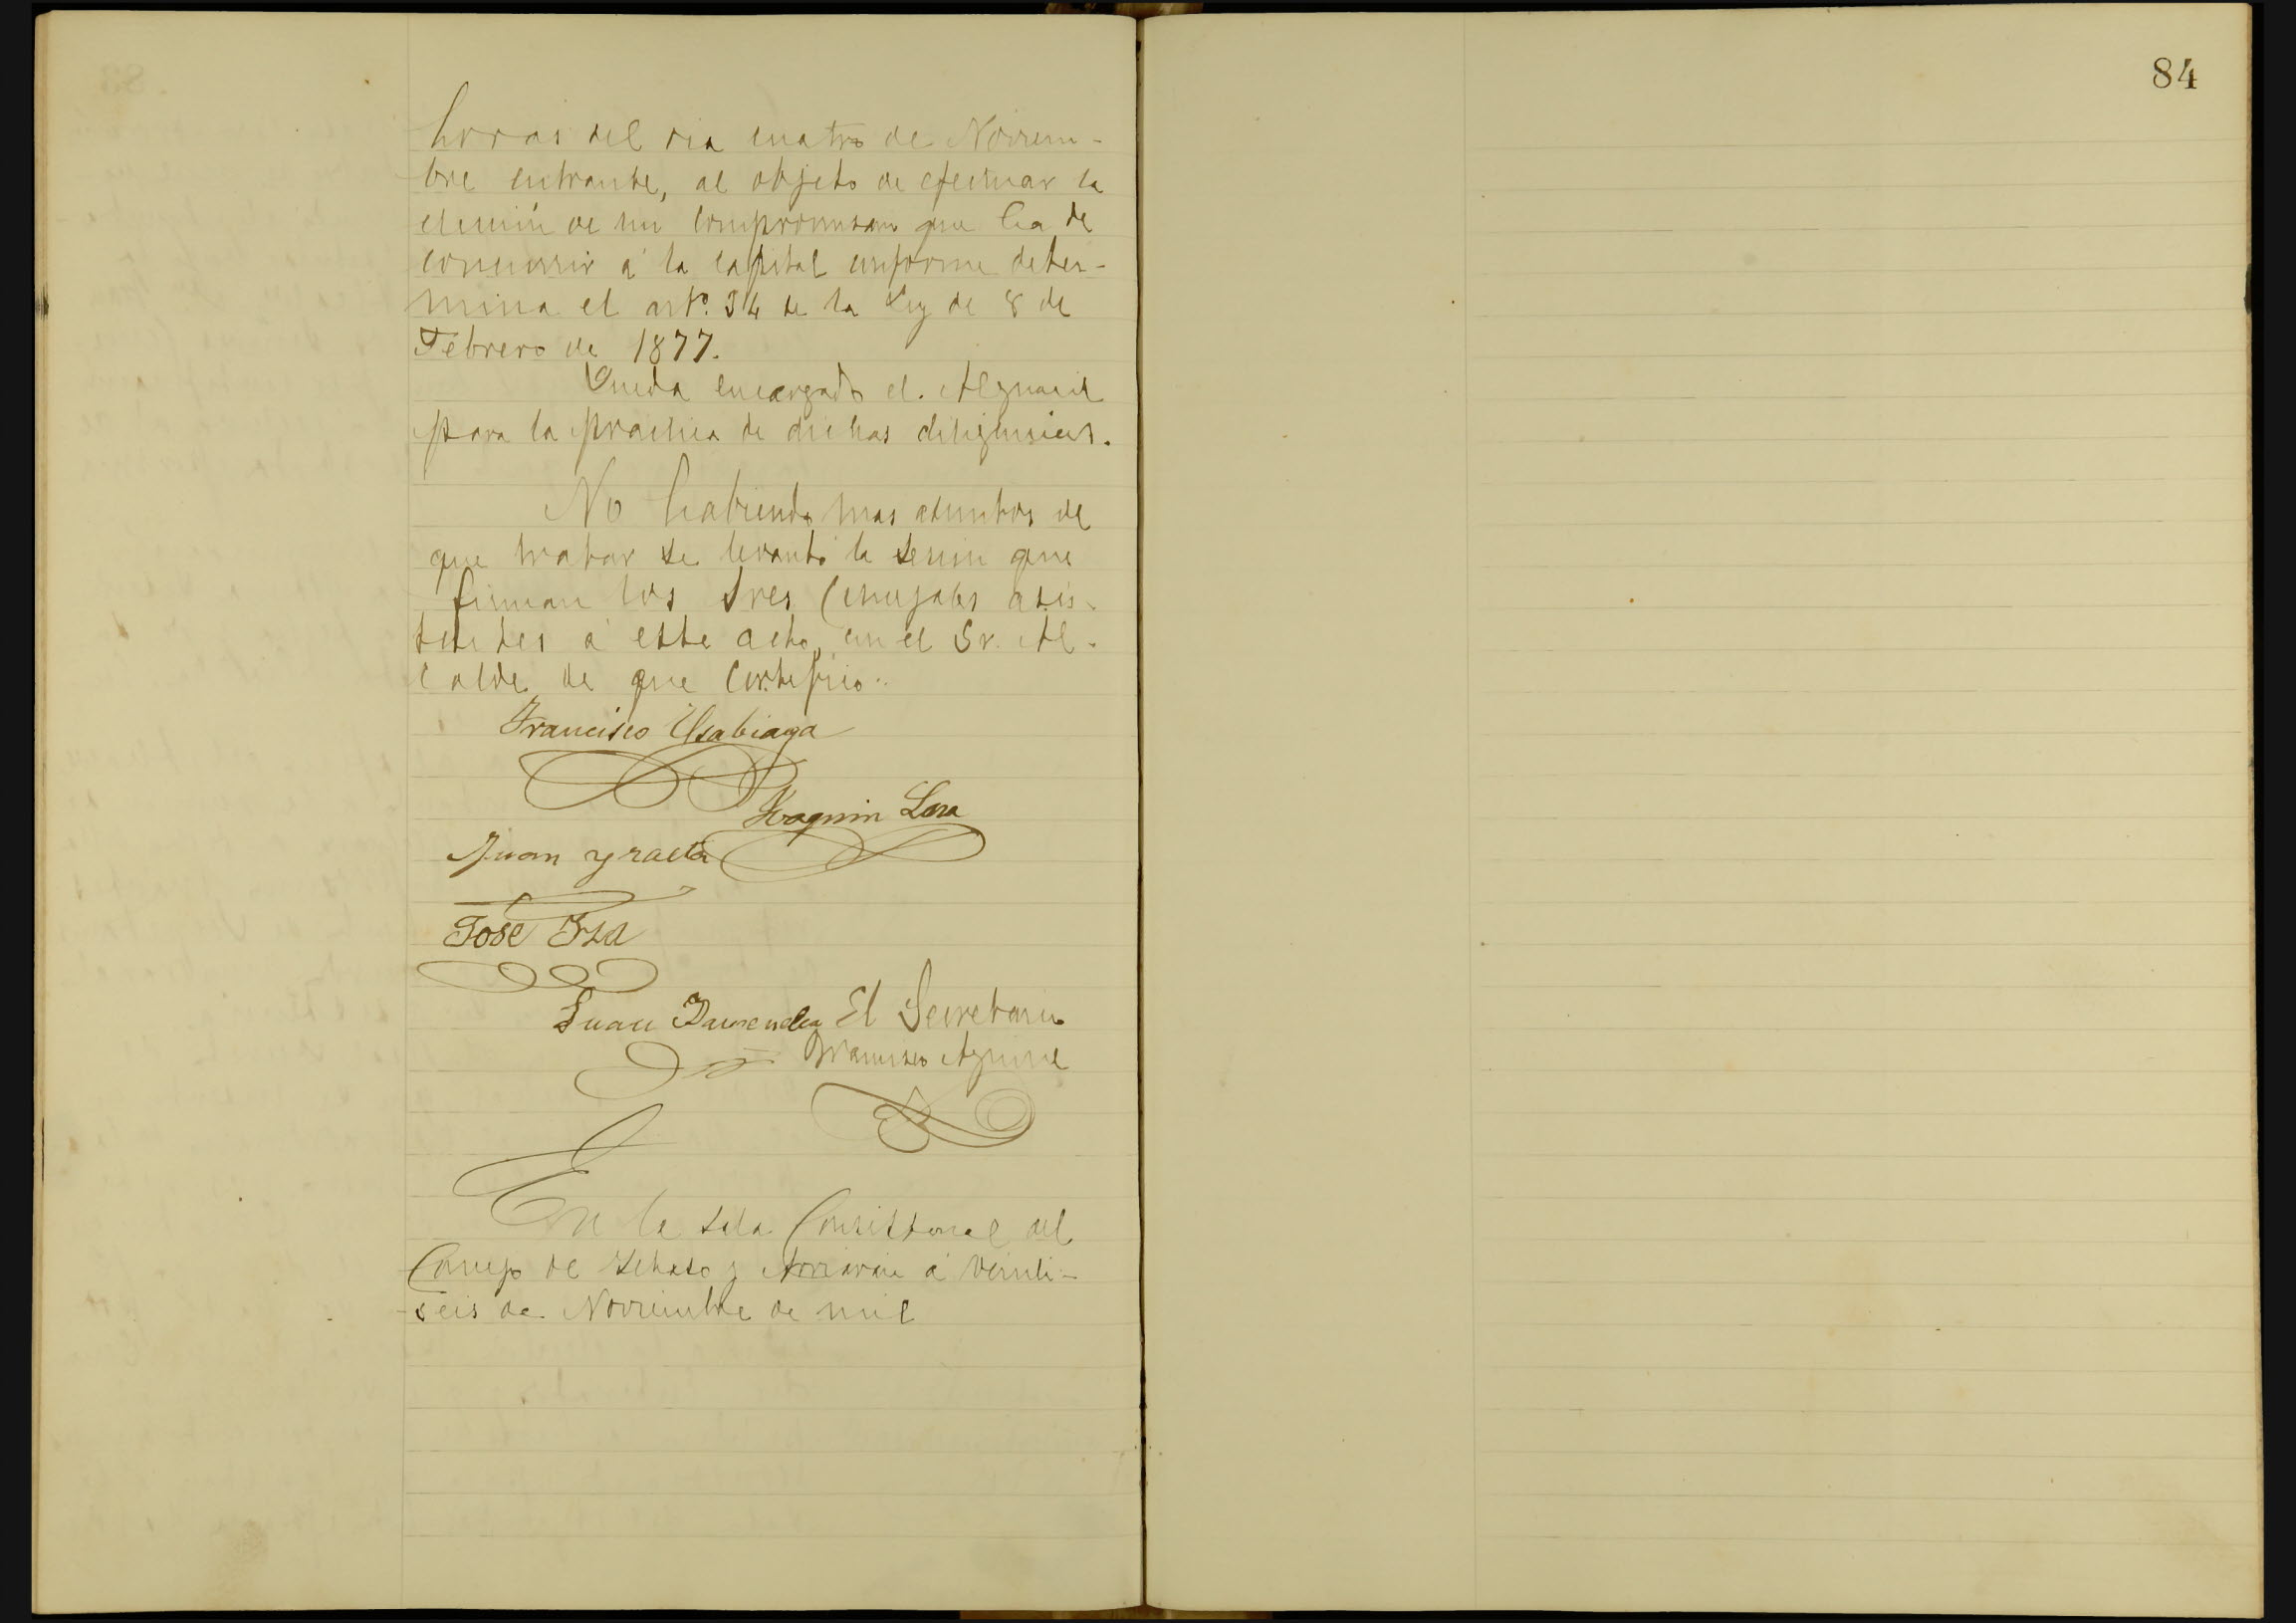 horas del dia cuatro de Noviem-
bre entrante, al objeto de efectuar la
elección de un Compromisario que ha de
concurrir á la capital conforme deter-
mina el artº. 34 de la Ley de 8 de
Febrero de 1877.
Queda encargado el Alguacil
para la practica de dichas diligencias.
No habiendo mas asuntos de
que tratar se levantó la sesion que
firman los Sres Concejales asis-
tentes á este acto, con el Sr. Al-
calde de que certifico.
Francisco Ysabiaga
Joaquin Lasa
Juan
José
Juan El Secretario
Francisco Aguirre
En la sala Consistorial del
Concejo de y Arriaran á veinti-
seis de Noviembre de mil
84